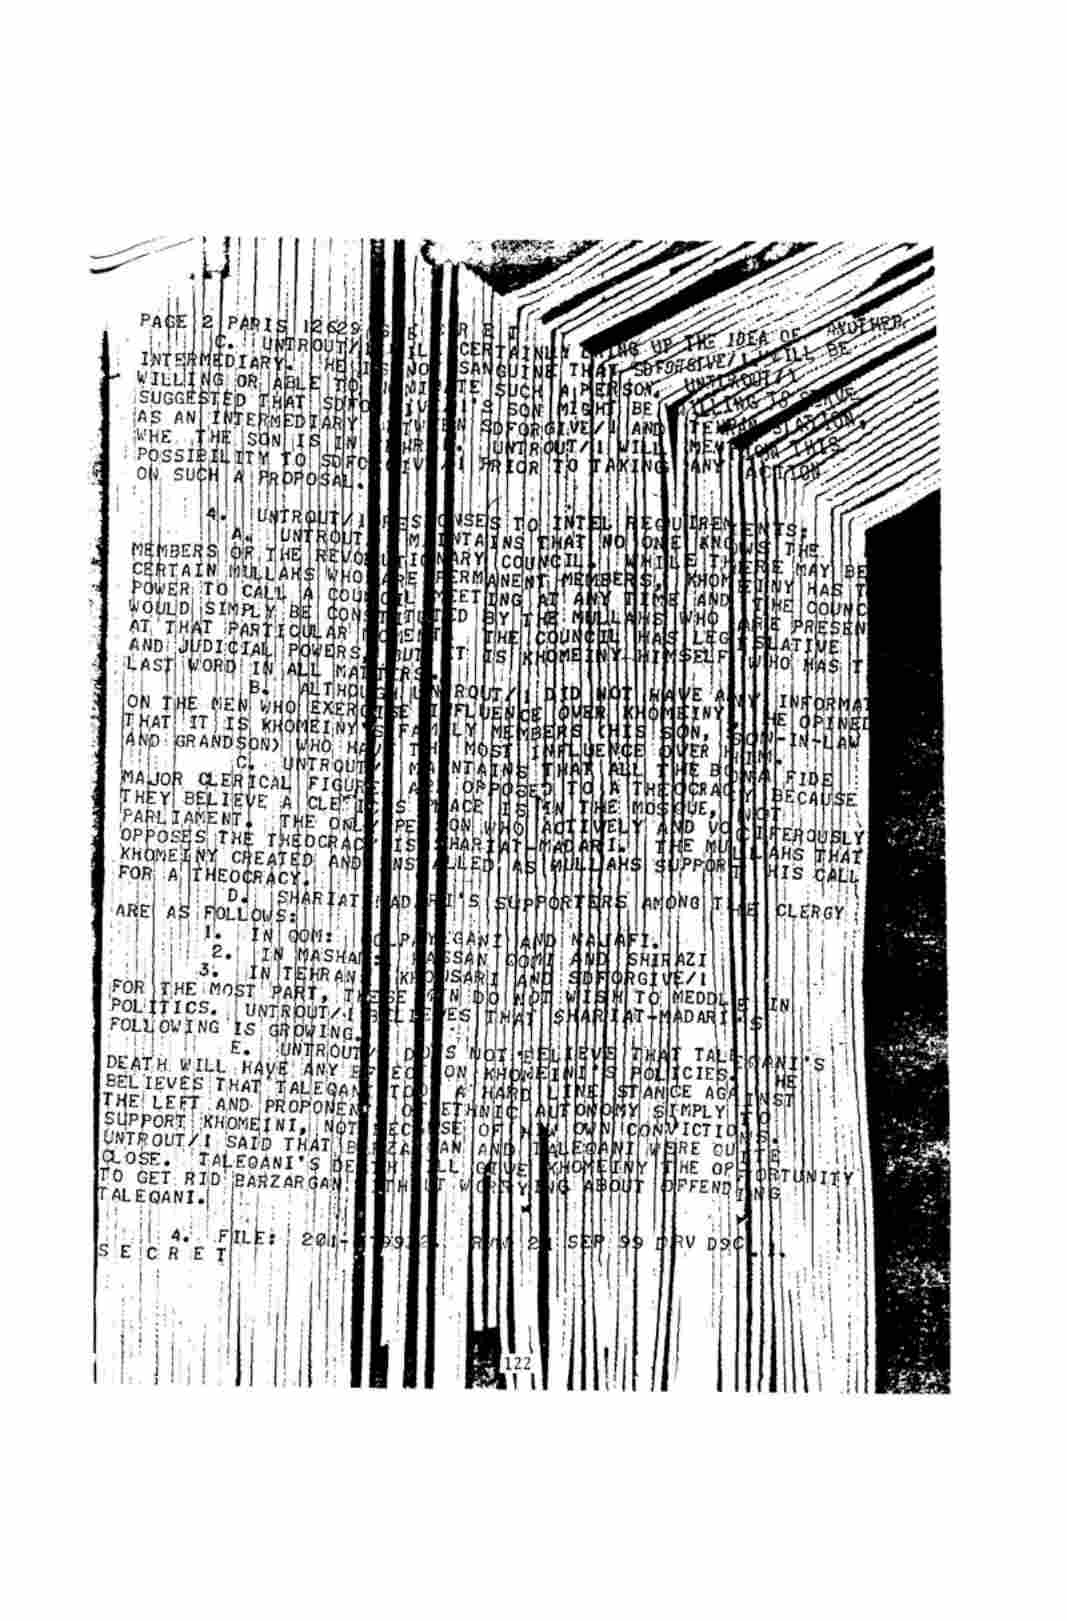 PAGE 2 PARIS 12629 S E C R E T
C. UNTROUT/1 WILL CERTAINLY BRING UP THE IDEA OF ANOTHER
INTERMEDIARY. HE IS NOT SANGUINE THAT SDFORGIVE/1 WILL BE
WILLING OR ABLE TO NOMINATE SUCH A PERSON. UNTROUT/1
SUGGESTED THAT SDFORGIVE/1'S SON MIGHT BE WILLING TO SERVE
AS AN INTERMEDIARY BETWEEN SDFORGIVE/1 AND TEHRAN STATION,
WHE THE SON IS IN TEHRAN. UNTROUT/1 WILL MENTION THIS
POSSIBILITY TO SDFORGIVE/1 PRIOR TO TAKING ANY ACTION
ON SUCH A PROPOSAL.
4. UNTROUT/1 RESPONSES TO INTEL REQUIREMENTS:
A. UNTROUT/1 MAINTAINS THAT NO ONE KNOWS THE
MEMBERS OF THE REVOLUTIONARY COUNCIL. WHILE THERE MAY BE
CERTAIN MULLAHS WHO ARE PERMANENT MEMBERS, KHOMEINY HAS T
POWER TO CALL A COUNCIL MEETING AT ANY TIME AND THE COUNC
WOULD SIMPLY BE CONSTITUTED BY THE MULLAHS WHO ARE PRESEN
AT THAT PARTICULAR MOMENT. THE COUNCIL HAS LEGISLATIVE
AND JUDICIAL POWERS, BUT IT IS KHOMEINY HIMSELF WHO HAS T
LAST WORD IN ALL MATTERS.
B. ALTHOUGH UNTROUT/1 DID NOT HAVE ANY INFORMAT
ON THE MEN WHO EXERCISE INFLUENCE OVER KHOMEINY, HE OPINED
THAT IT IS KHOMEINY'S FAMILY MEMBERS (HIS SON, SON-IN-LAW
AND GRANDSON) WHO HAVE THE MOST INFLUENCE OVER HIM.
C. UNTROUT/1 MAINTAINS THAT ALL THE BONA FIDE
MAJOR CLERICAL FIGURES ARE OPPOSED TO A THEOCRACY BECAUSE
THEY BELIEVE A CLERIC'S PLACE IS IN THE MOSQUE, NOT
PARLIAMENT. THE ONLY PERSON WHO ACTIVELY AND VOCIFEROUSLY
OPPOSES THE THEOCRACY IS SHARIAT-MADARI. THE MULLAHS THAT
KHOMEINY CREATED AND INSTALLED AS MULLAHS SUPPORT HIS CALL
FOR A THEOCRACY.
D. SHARIAT-MADARI'S SUPPORTERS AMONG THE CLERGY
ARE AS FOLLOWS:
1. IN QOM: GOLPAYEGANI AND NAJAFI.
2. IN MASHAD: HASSAN QOMI AND SHIRAZI
3. IN TEHRAN: KHONSARI AND SDFORGIVE/1
FOR THE MOST PART, THESE MEN DO NOT WISH TO MEDDLE IN
POLITICS. UNTROUT/1 BELIEVES THAT SHARIAT-MADARI'S
FOLLOWING IS GROWING.
E. UNTROUT/1 DOES NOT BELIEVE THAT TALEGANI'S
DEATH WILL HAVE ANY EFFECT ON KHOMEINI'S POLICIES. HE
BELIEVES THAT TALEGANI TOOK A HARD LINE STANCE AGAINST
THE LEFT AND PROPONENTS OF ETHNIC AUTONOMY SIMPLY TO
SUPPORT KHOMEINI, NOT BECAUSE OF HIW OWN CONVICTIONS.
UNTROUT/1 SAID THAT BARZARGAN AND TALEQANI WERE QUITE
CLOSE. TALEQANI'S DEATH WILL GIVE KHOMEINY THE OPPORTUNITY
TO GET RID BARZARGAN WITHOUT WORRYING ABOUT OFFENDING
TALEQANI.
4. FILE: RVW 21 SEP 99 DRV D9C.1.
S E C R E T
122